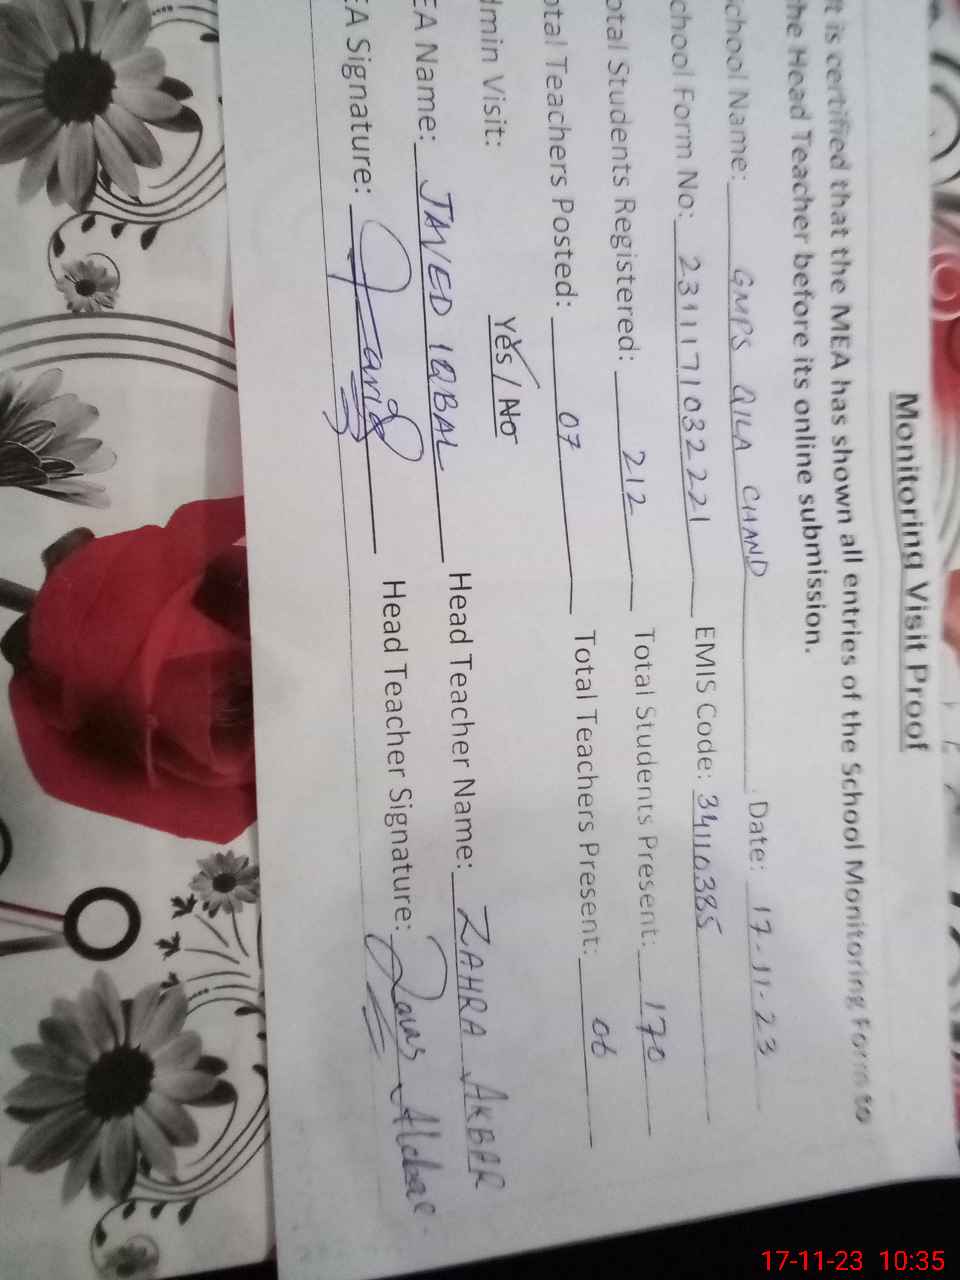 Monitoring Visit Proof
It is certified that the MEA has shown all entries of the School Monitoring Form to
the Head Teacher before its online submission.
chool Name: GMPS QILA CHAND Date: 17-11-23
chool Form No: 2311171032221 EMIS Code: 34110385
otal Students Registered: 212 Total Students Present: 170
otal Teachers Posted: 07 Total Teachers Present: 06
dmin Visit: Yes / No
EA Name: JAVED IQBAL Head Teacher Name: ZAHRA AKBAR
EA Signature: Javid Head Teacher Signature:
17-11-23 10:35